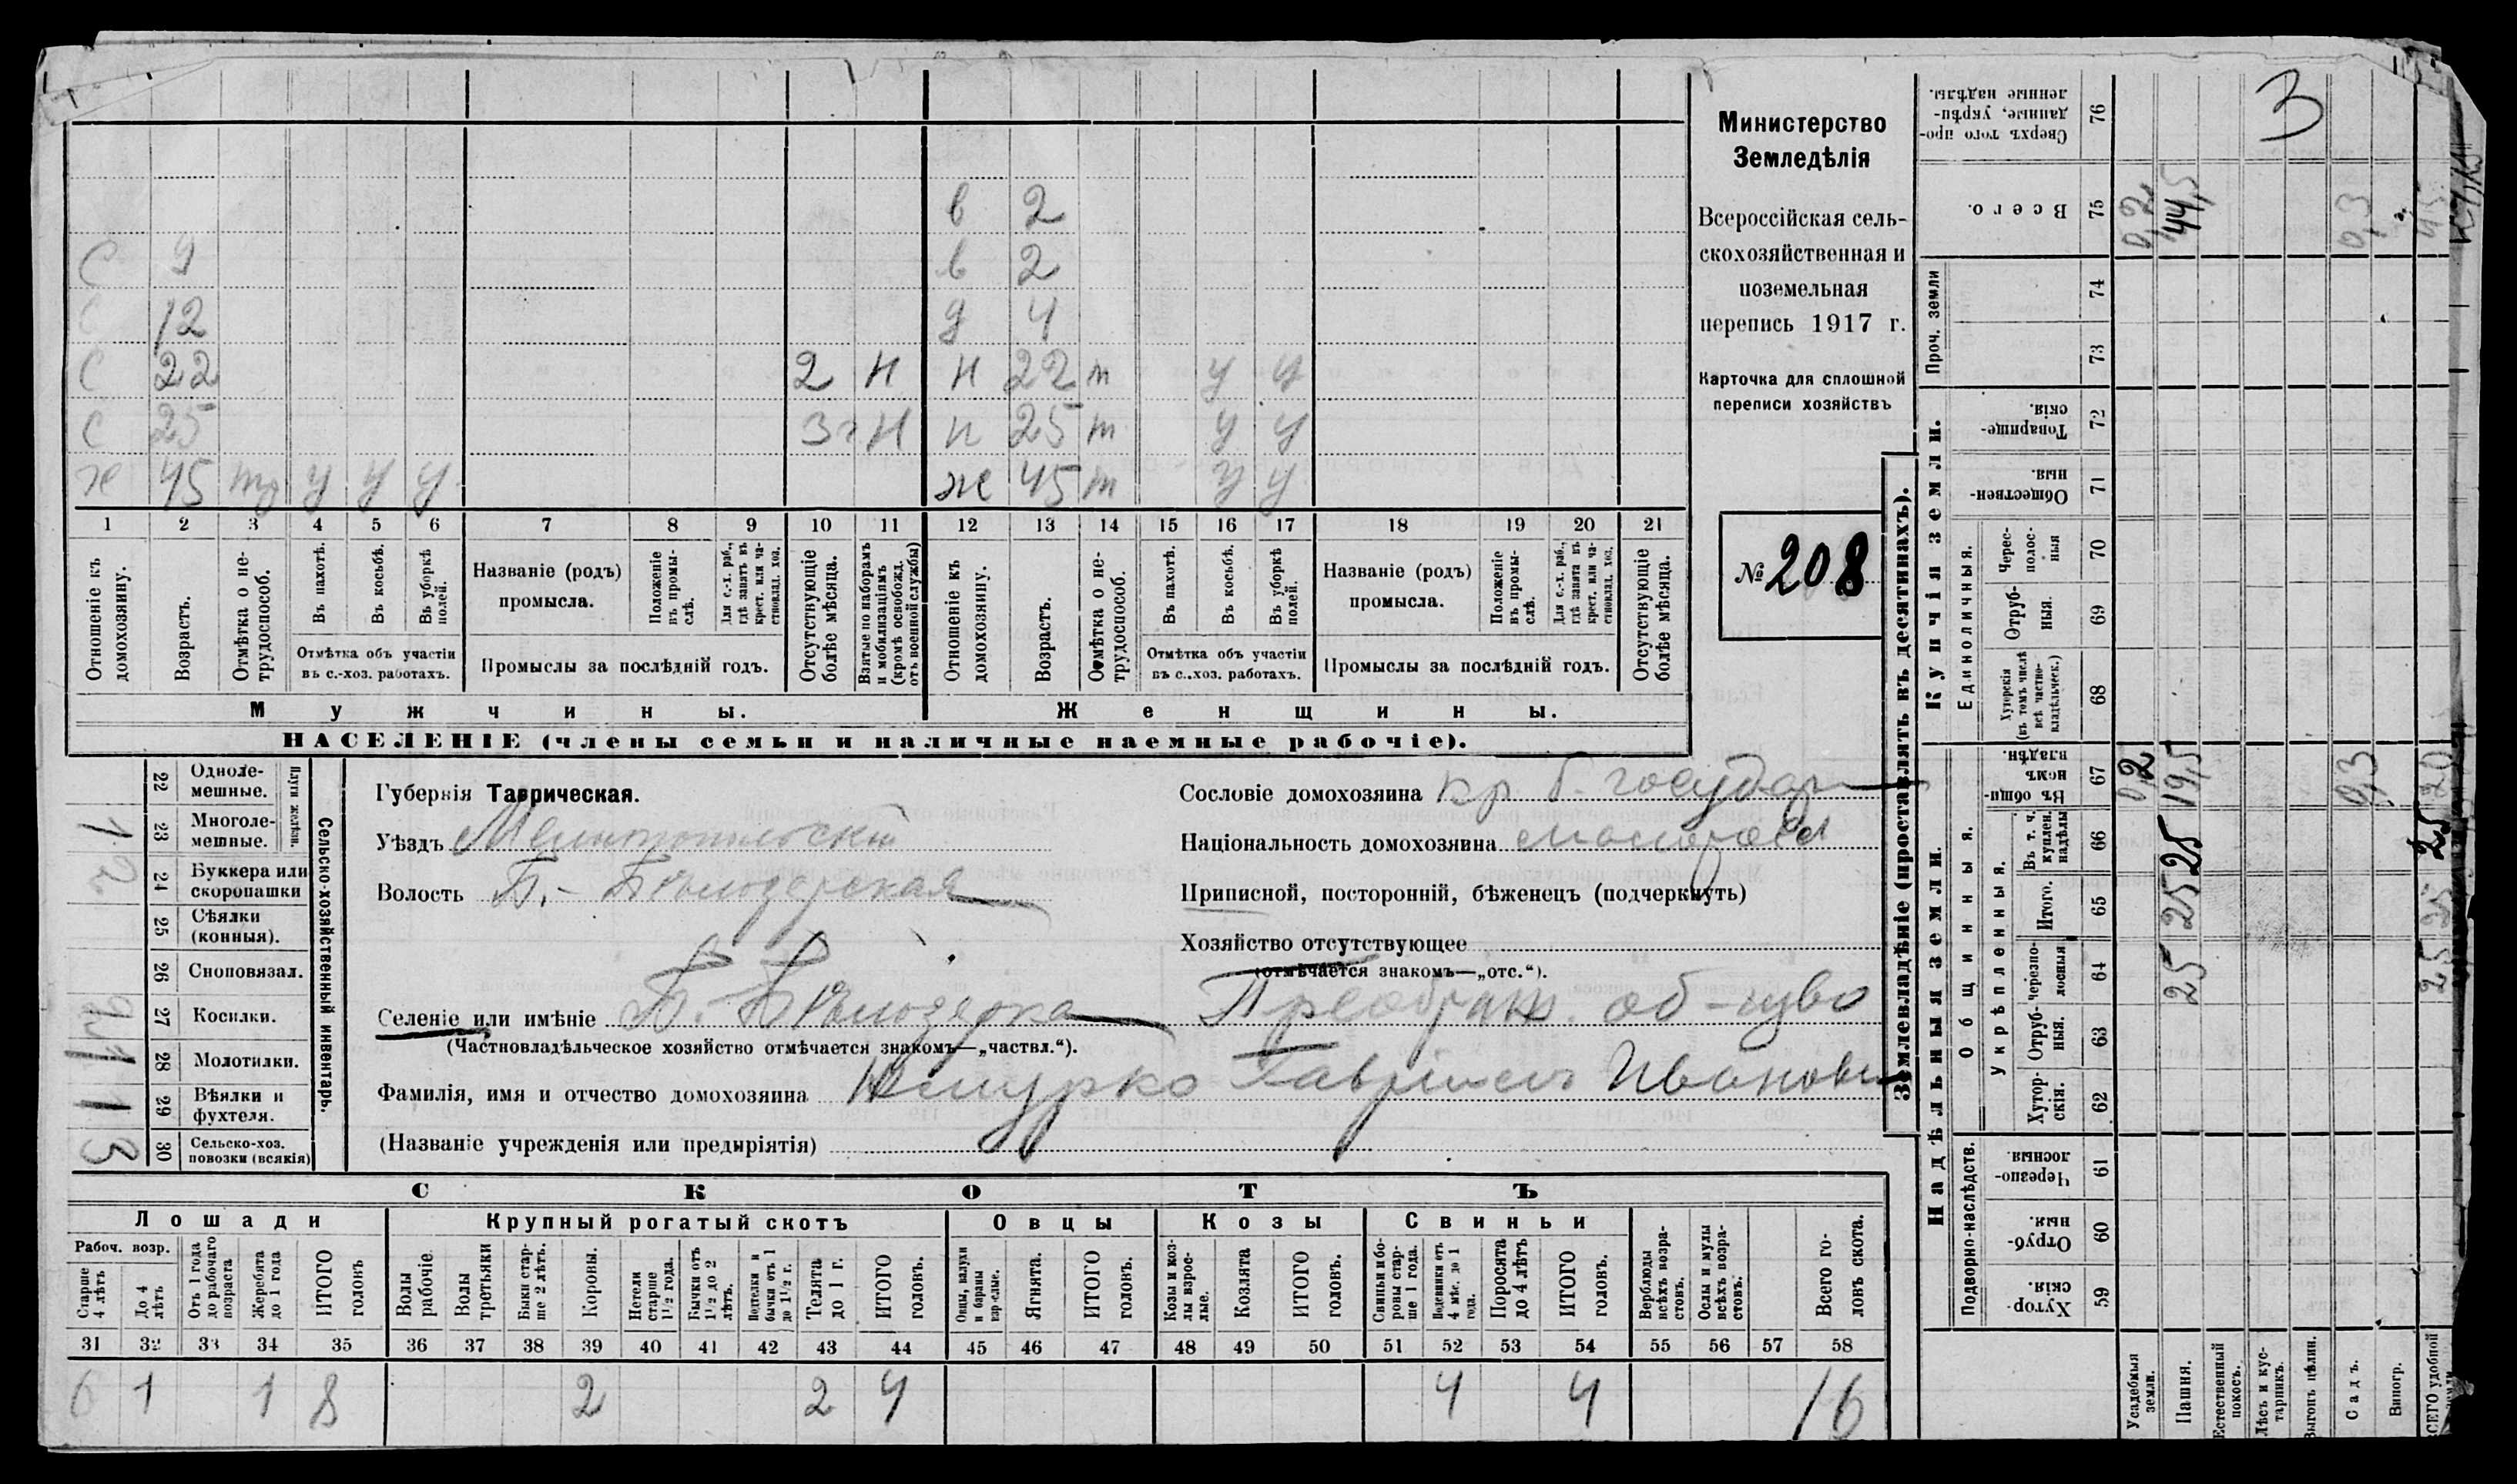 Министерство
Земледѣлія
Всероссійская сель-
скохозяйственная и
поземельная
перепись 1917 г.
Карточка для сплошной
переписи хозяйствъ
№ 208
3
в 2
С 9 в 2
С 12 д 4
С 22 2 н н 22 т у у
С 25 3г н н 25 т у у
ж 45 у у у ж 45 т у у
1 2 3 4 5 6 7 8 9 10 11 12 13 14 15 16 17 18 19 20 21
Отношеніе къ домохозяину.
Возрастъ.
Отмѣтка о не-трудоспособ.
Въ пахотѣ.
Въ косьбѣ.
Въ уборкѣ полей.
Отмѣтка объ участіи
въ с.-хоз. работахъ.
Названіе (родъ)
промысла.
Положеніе въ промы-слѣ.
Для с.-х. раб., гдѣ занятъ въ крест. или ча-стновлад. хоз.
Промыслы за послѣдній годъ.
Отсутствующіе болѣе мѣсяца.
Взятые по наборамъ и мобилизаціямъ (кромѣ освобожд. отъ военной службы)
Отношеніе къ домохозяину.
Возрастъ.
Отмѣтка о не-трудоспособ.
Въ пахотѣ.
Въ косьбѣ.
Въ уборкѣ полей.
Отмѣтка объ участіи
въ с..хоз. работахъ.
Названіе (родъ)
промысла.
Положеніе въ промы-слѣ.
Для с.-х. раб., гдѣ занята въ крест. или ча-стновлад. хоз.
Промыслы за послѣдній годъ.
Отсутствующіе болѣе мѣсяца.
Мужчины. Женщины.
НАСЕЛЕНІЕ (члены семьи и наличные наемные рабочіе).
Сельско-хозяйственный инвентарь.
Плуги желѣзн.
22 Одноле-мешные.
1 23 Многоле-мешные.
2 24 Буккера или скоропашки
25 Сѣялки (конныя).
26 Сноповязал.
27 Косилки.
1 28 Молотилки.
1 29 Вѣялки и фухтеля.
3 30 Сельско-хоз. повозки (всякія)
Губернія Таврическая.
Уѣздъ Мелитопольскій
Волость Б.-Бѣлозерская
Селеніе или имѣніе Б. Бѣлозерка
(Частновладѣльческое хозяйство отмѣчается знакомъ—„частвл.“).
Сословіе домохозяина кр. б. государ
Національность домохозяина малоросс
Приписной, посторонній, бѣженецъ (подчеркнуть)
Хозяйство отсутствующее
(отмѣчается знакомъ—„отс.“).
Преображ. об-чество
Фамилія, имя и отчество домохозяина Гавріилъ Иванович
(Названіе учрежденія или предпріятія)
СКОТЪ
Лошади Крупный рогатый скотъ Овцы Козы Свиньи
Рабоч. возр.
Старше 4 лѣтъ
До 4 лѣтъ
Отъ 1 года до рабочаго возраста
Жеребята до 1 года
ИТОГО головъ
Волы рабочіе.
Волы третьяки
Быки стар-ше 2 лѣтъ.
Коровы.
Нетели старше 1½ года.
Бычки отъ 1½ до 2 лѣтъ.
Подтелки и бычки отъ 1 до 1½ г.
Телята до 1 г.
ИТОГО головъ.
Овцы, валухи и бараны взрослые.
Ягнята.
ИТОГО головъ.
Козы и коз-лы взрос-лые.
Козлята
ИТОГО головъ.
Свиньи и бо-ровы стар-ше 1 года.
Подсвинки отъ 4 мѣс. до 1 года.
Поросята до 4 лѣтъ
ИТОГО головъ.
Верблюды всѣхъ возра-стовъ.
Ослы и мулы всѣхъ возра-стовъ.
Всего го-ловъ скота.
31 32 33 34 35 36 37 38 39 40 41 42 43 44 45 46 47 48 49 50 51 52 53 54 55 56 57 58
6 1 1 8 2 2 4 4 4 16
Землевладѣніе (проставлять въ десятинахъ).
Купчія земли.
Надѣльныя земли.
Проч. земли
Единоличныя.
Общинныя.
Укрѣпленныя.
Подворно-наслѣдств.
76 Сверхъ того про-данные, укрѣп-ленные надѣлы.
75 Всего. 0,2 44,5 0,3 45
74
73
72 Товарище-скія.
71 Обществен-ныя.
70 Черес-полос-ныя
69 Отруб-ныя.
68 Хуторскія (въ томъ числѣ всѣ частно-владѣльческ.)
67 Въ общи-номъ владѣн. 0,2 19,5 0,3 20
66 Въ т. ч. куплен. надѣлы 25 25
65 Итого. 25 25
64 Черезпо-лосныя 25 25
63 Отруб-ныя.
62 Хутор-скія.
61 Черезпо-лосныя.
60 Отруб-ныя.
59 Хутор-скія.
Усадебныя земли.
Пашня.
Естественный покосъ.
Лѣсъ и кус-тарникъ.
Выгонъ цѣлин.
Садъ.
Виногр.
ВСЕГО удобной земли